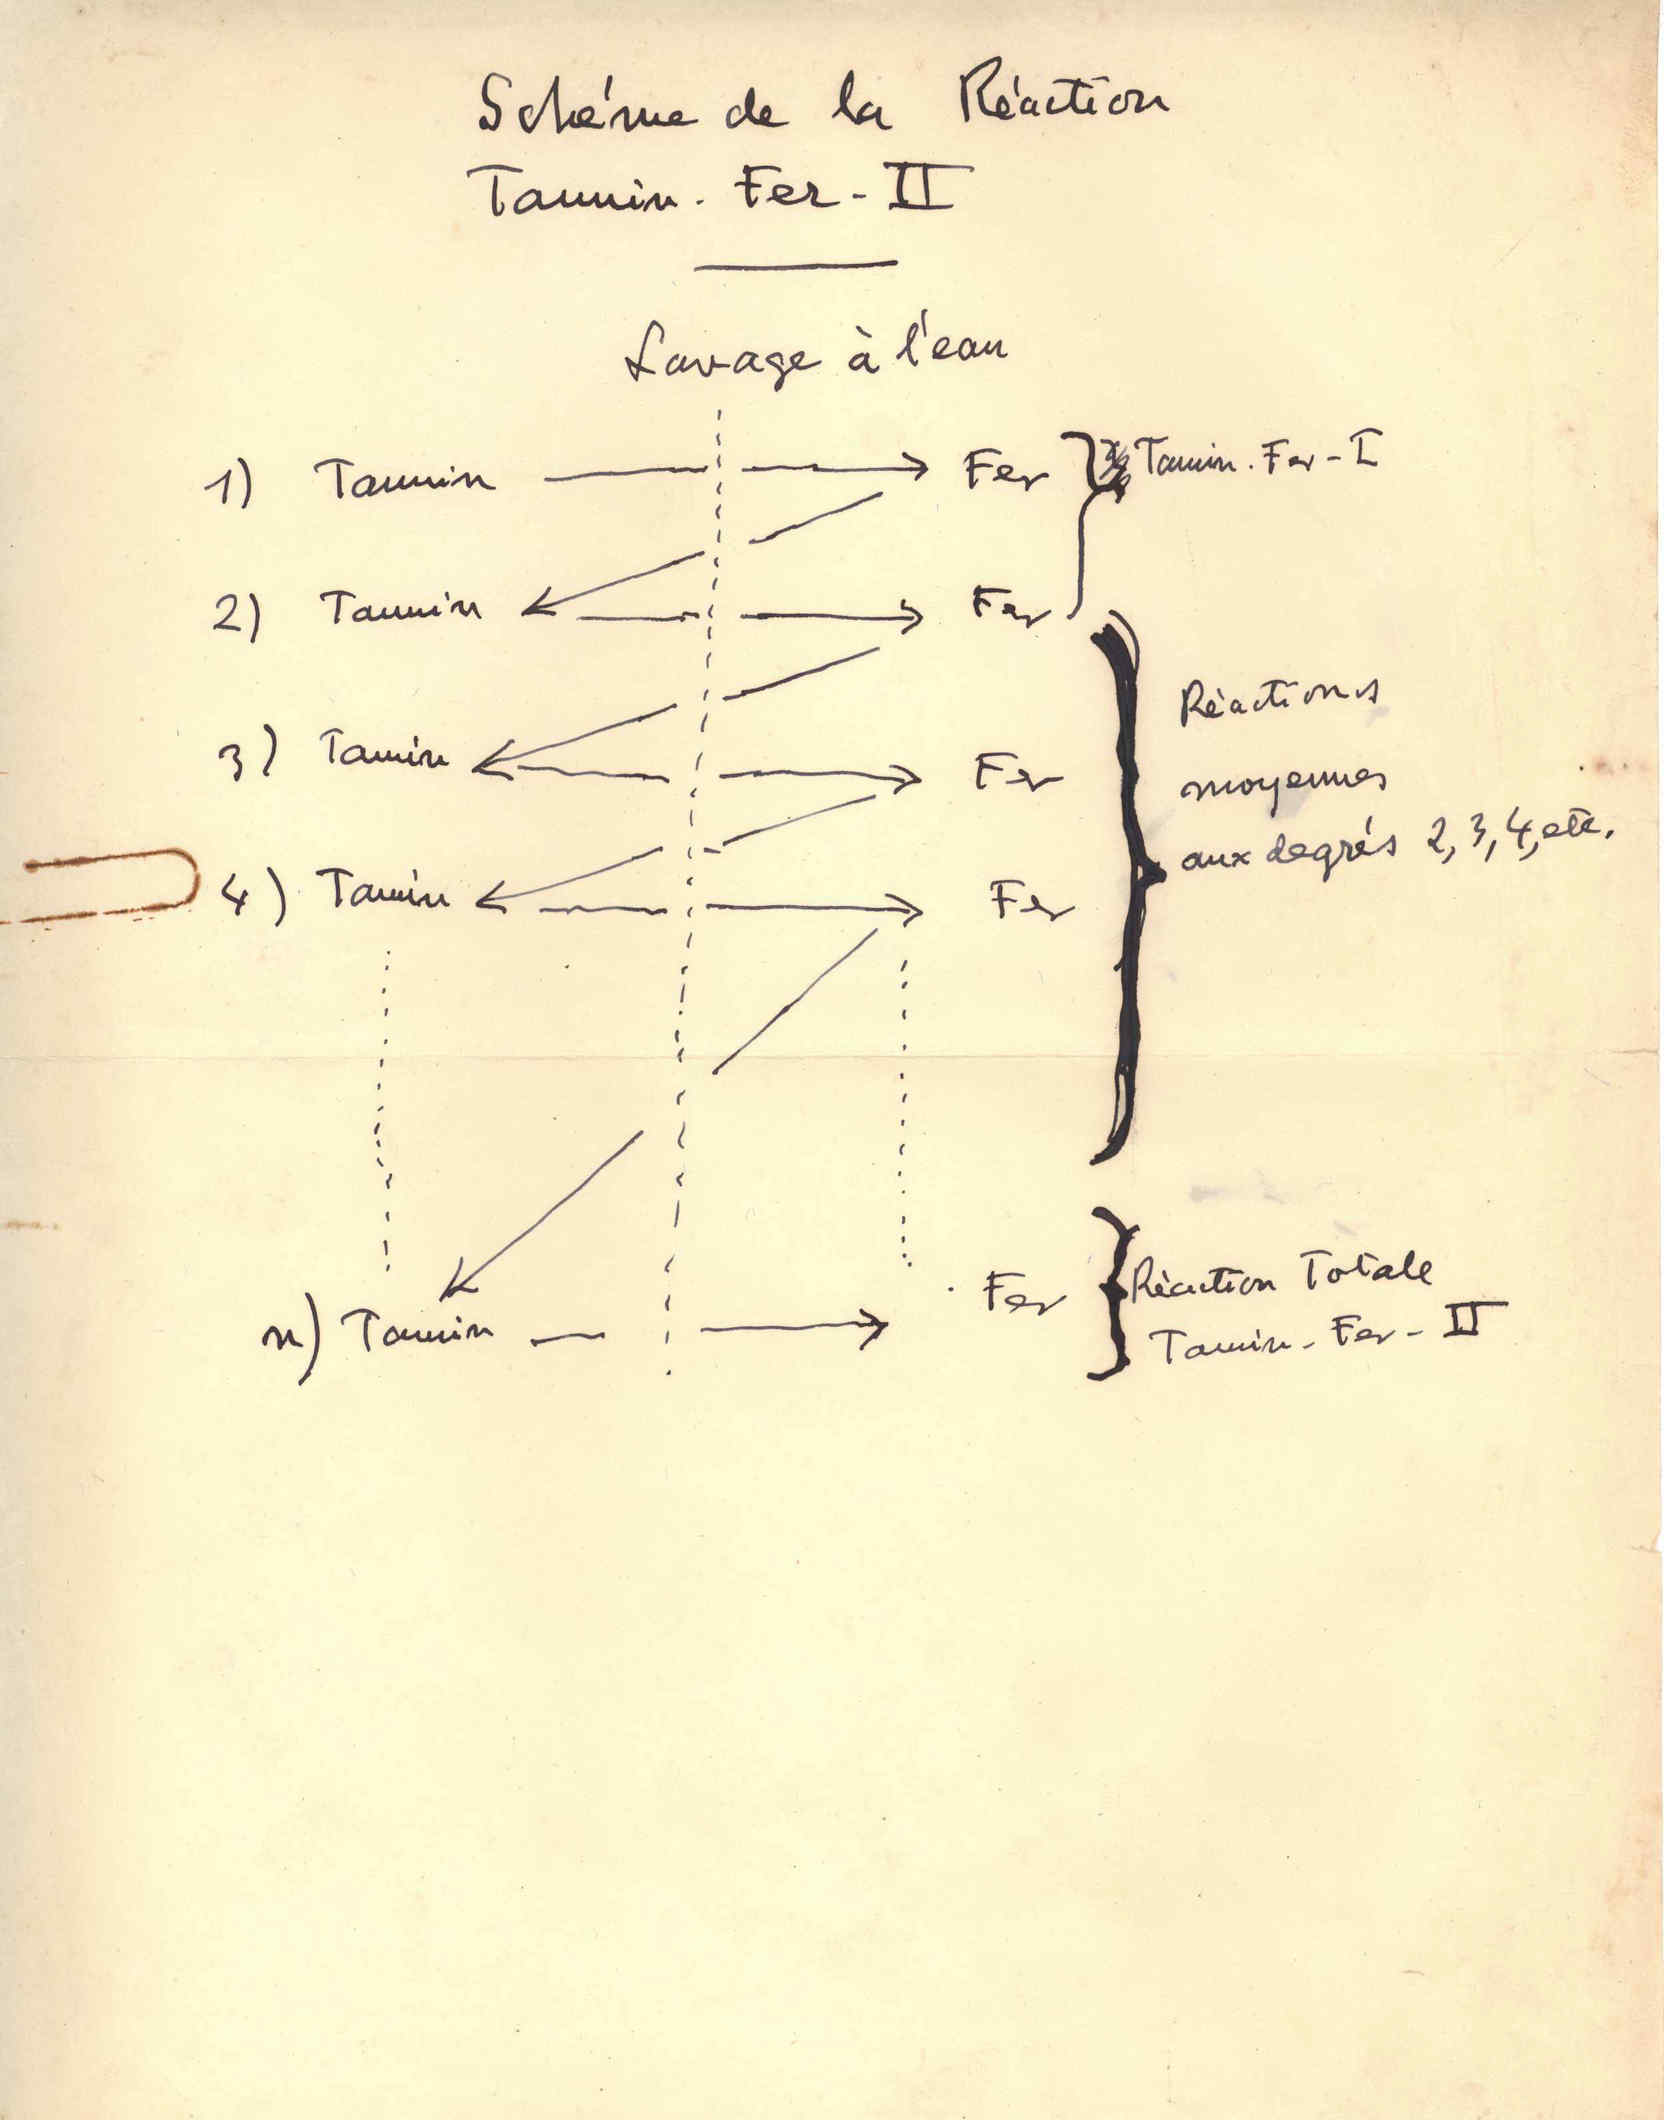 Schéme de la Réaction
Tannin. Fer - II
Lavage à l'eau
1) Tannin Fer Tannin. Fer - I
2) Tannin Fer
3) Tannin Fer
4) Tannin Fer
Réactions
moyennes
aux degrés 2, 3, 4, etc.
n) Tannin Fer
Réaction Totale
Tannin - Fer - II